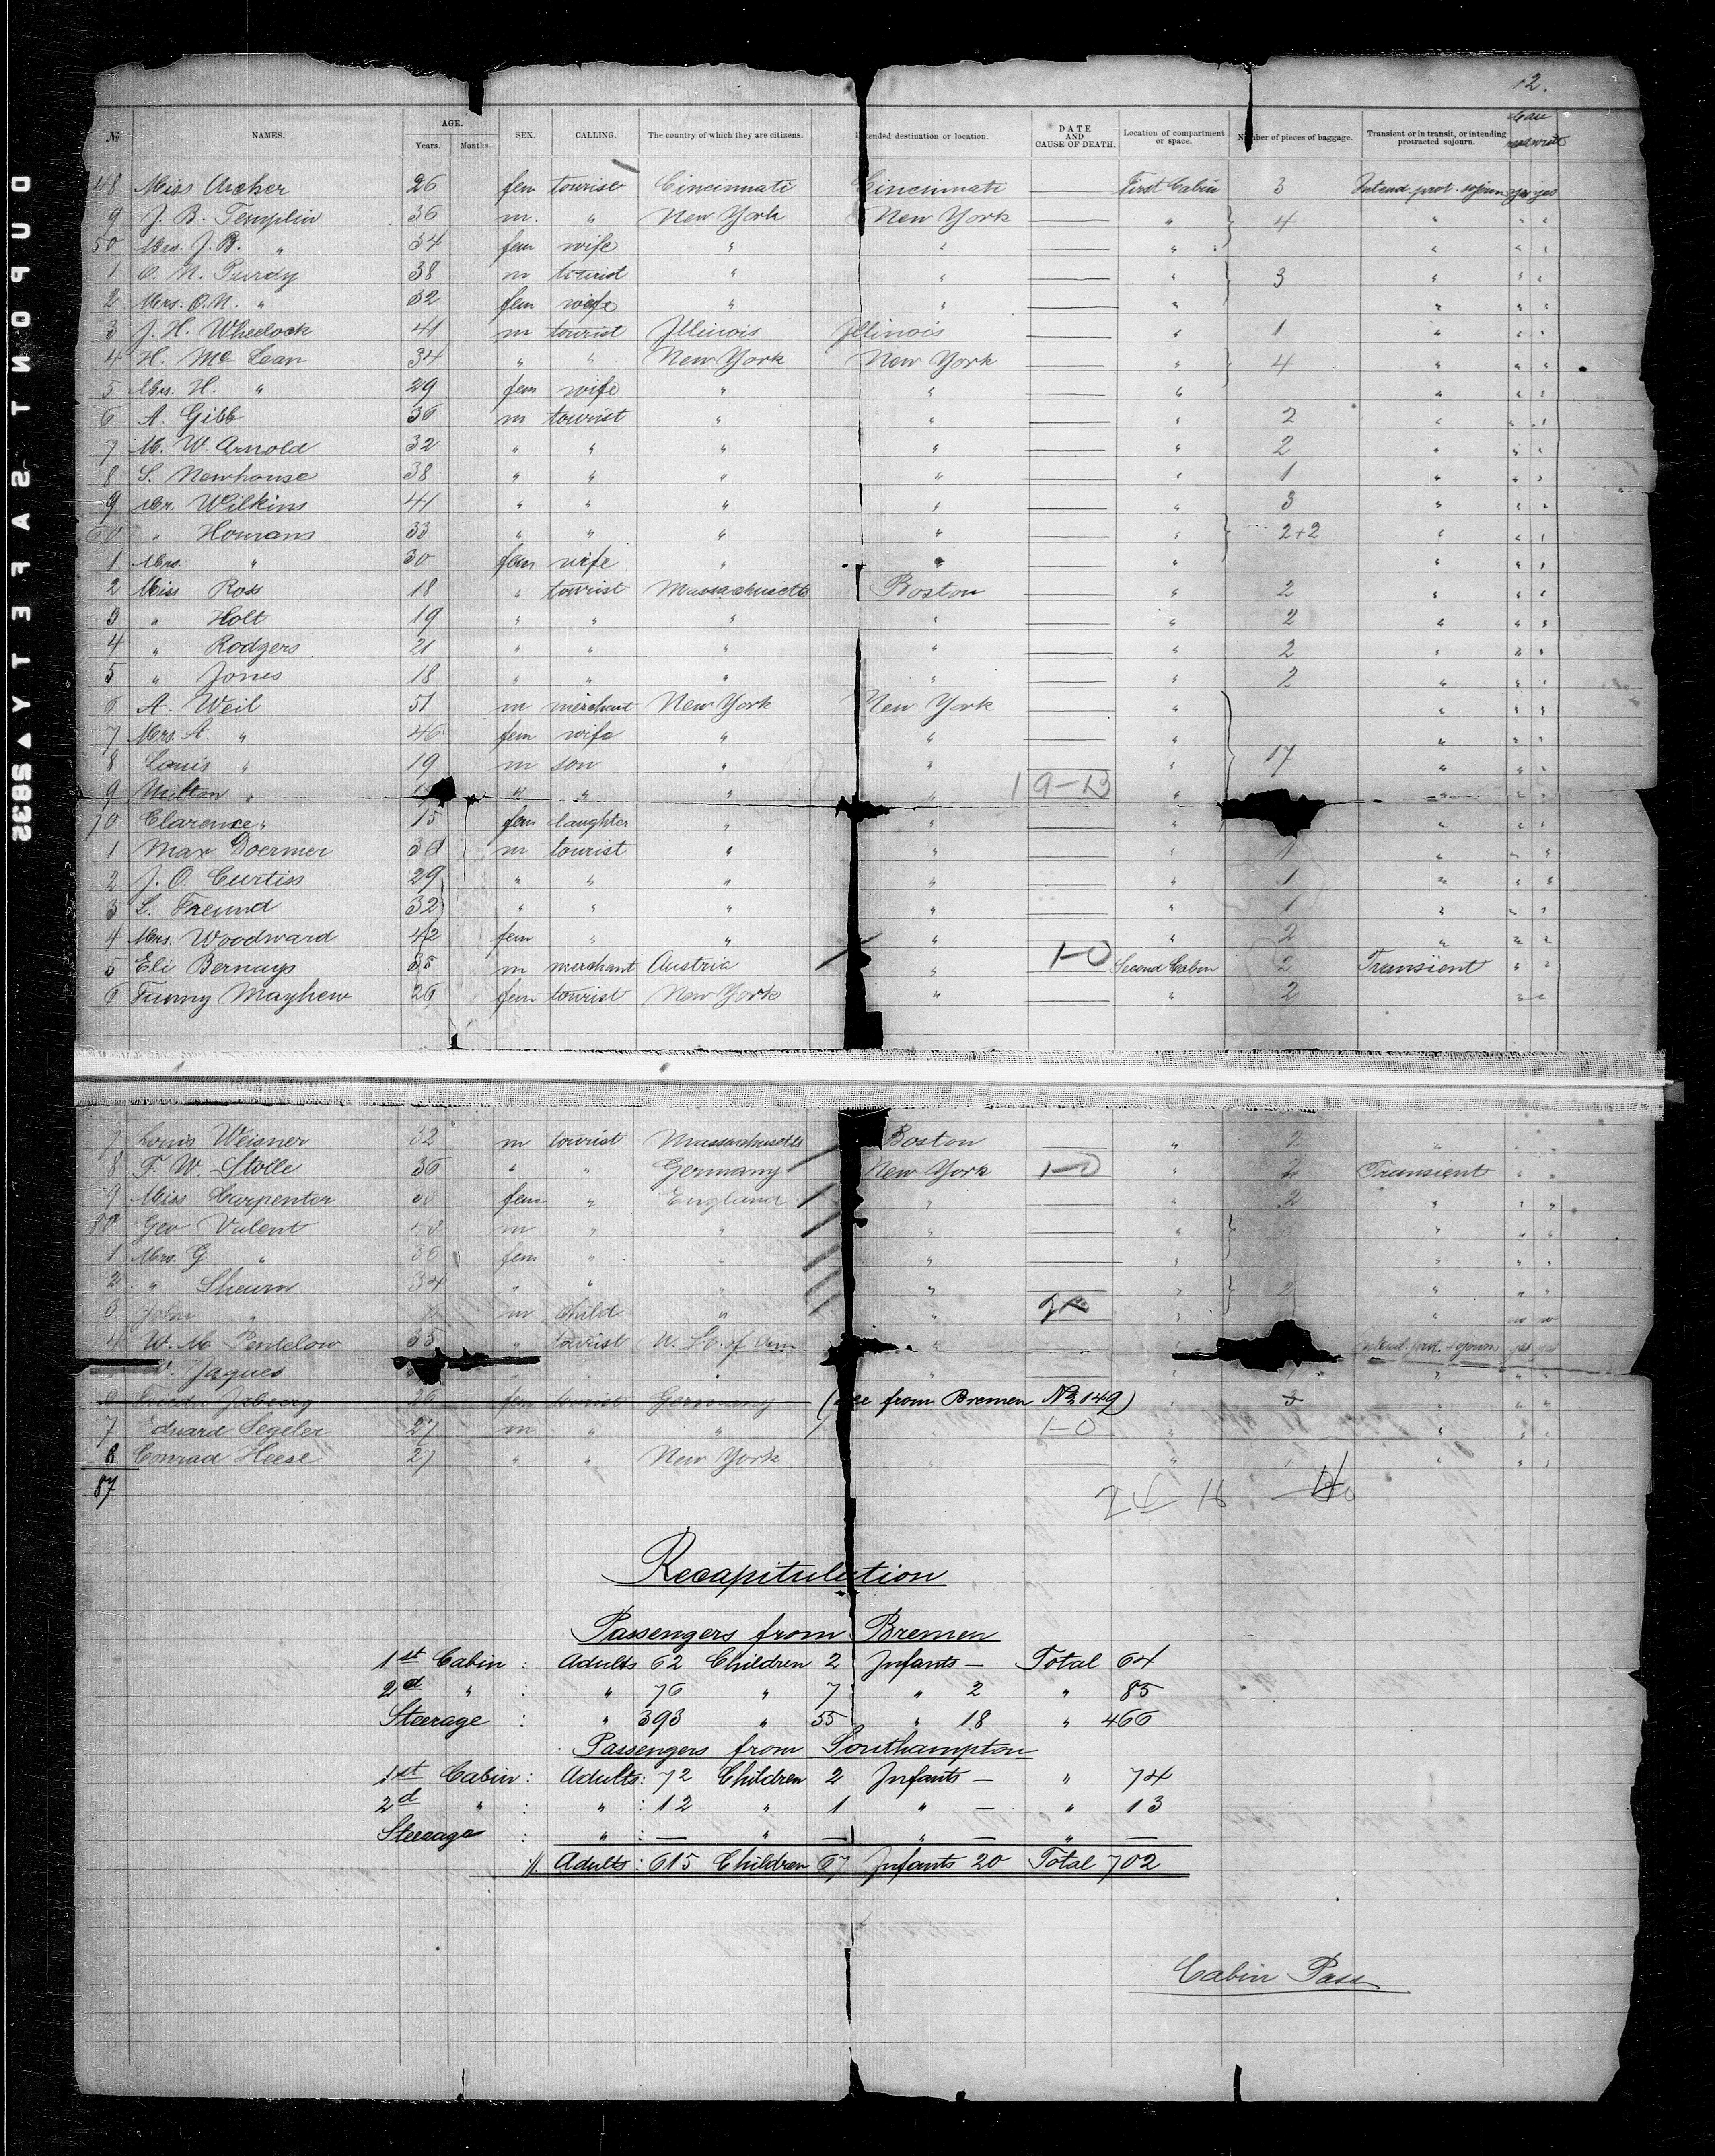 DUPONT SAFETY ▲ S832
12.
№ NAMES. AGE. Years. Months. SEX. CALLING. The country of which they are citizens. Intended destination or location. DATE AND CAUSE OF DEATH. Location of compartment or space. Number of pieces of baggage. Transient or in transit, or intending protracted sojourn. read write
48 Miss Archer 26 fem tourist Cincinnati Cincinnati — First Cabin 3 Intend. prot. sojourn yes yes
9 J. B. Templin 36 m. " New York New York — " 4 " " "
50 Mrs. J. B. " 34 fem wife " " — " " " "
1 O. N. Purdy 38 m tourist " " — " 3 " " "
2 Mrs. O. N. " 32 fem wife " " — " " " "
3 J. H. Wheelock 41 m tourist Illinois Illinois — " 1 " " "
4 H. Mc Lean 34 " " New York New York — " 4 " " "
5 Mrs. H. " 29 fem wife " " — " " " "
6 A. Gibb 36 m tourist " " — " 2 " " "
7 M. W. Arnold 32 " " " " — " 2 " " "
8 S. Newhouse 38 " " " " — " 1 " " "
9 Mr. Wilkins 41 " " " " — " 3 " " "
60 " Homans 33 " " " " — " 2+2 " " "
1 Mrs. " 30 fem wife " " — " " " "
2 Miss Ross 18 " tourist Massachusetts Boston — " 2 " " "
3 " Holt 19 " " " " — " 2 " " "
4 " Rodgers 21 " " " " — " 2 " " "
5 " Jones 18 " " " " — " 2 " " "
6 A. Weil 51 m merchant New York New York — " " " "
7 Mrs. A. " 46 fem wife " " — " " " "
8 Louis " 19 m son " " — " 17 " " "
9 Milton " " " " " 19-13 " " " "
70 Clarence " 15 fem daughter " " — " " " "
1 Max Doermer 30 m tourist " " — " 1 " " "
2 J. O. Curtiss 29 " " " " — " 1 " " "
3 L. Freund 32 " " " " — " 1 " " "
4 Mrs. Woodward 42 fem " " " — " 2 " " "
5 Eli Bernays 35 m merchant Austria " 1-0 Second Cabin 2 Transient " "
6 Fanny Mayhew 26 fem tourist New York " — " 2 " "
7 Louis Weisner 32 m tourist Massachusetts Boston — " 2 " " "
8 F. W. Stolle 36 " " Germany New York 1-0 " 2 Transient " "
9 Miss Carpenter 30 fem " England " — " 2 " " "
80 Geo Valent 40 m " " " — " " " "
1 Mrs. G. " 36 fem " " " — " " " "
2 " Sheurn 34 " " " " — " 2 " " "
3 John " m child " " " " no no
4 W. M. Pentelow 35 " tourist U. St. of Am " — " Intend. prot. sojourn yes yes
Jaques
26 fem tourist Germany (see from Bremen No. 149) " 3 " " "
7 Eduard Segeler 27 m " " " 1-0 " " " "
8 Conrad Heese 27 " " New York " — " " " "
87
24 16
Recapitulation
Passengers from Bremen
1st Cabin : Adults 62 Children 2 Infants — Total 64
2d " : " 76 " 7 " 2 " 85
Steerage : " 393 " 55 " 18 " 466
Passengers from Southampton
1st Cabin : Adults: 72 Children 2 Infants — " 74
2d " : " : 12 " 1 " — " 13
Steerage : " : — " — " — " —
Adults : 615 Children 67 Infants 20 Total 702
Cabin Pass